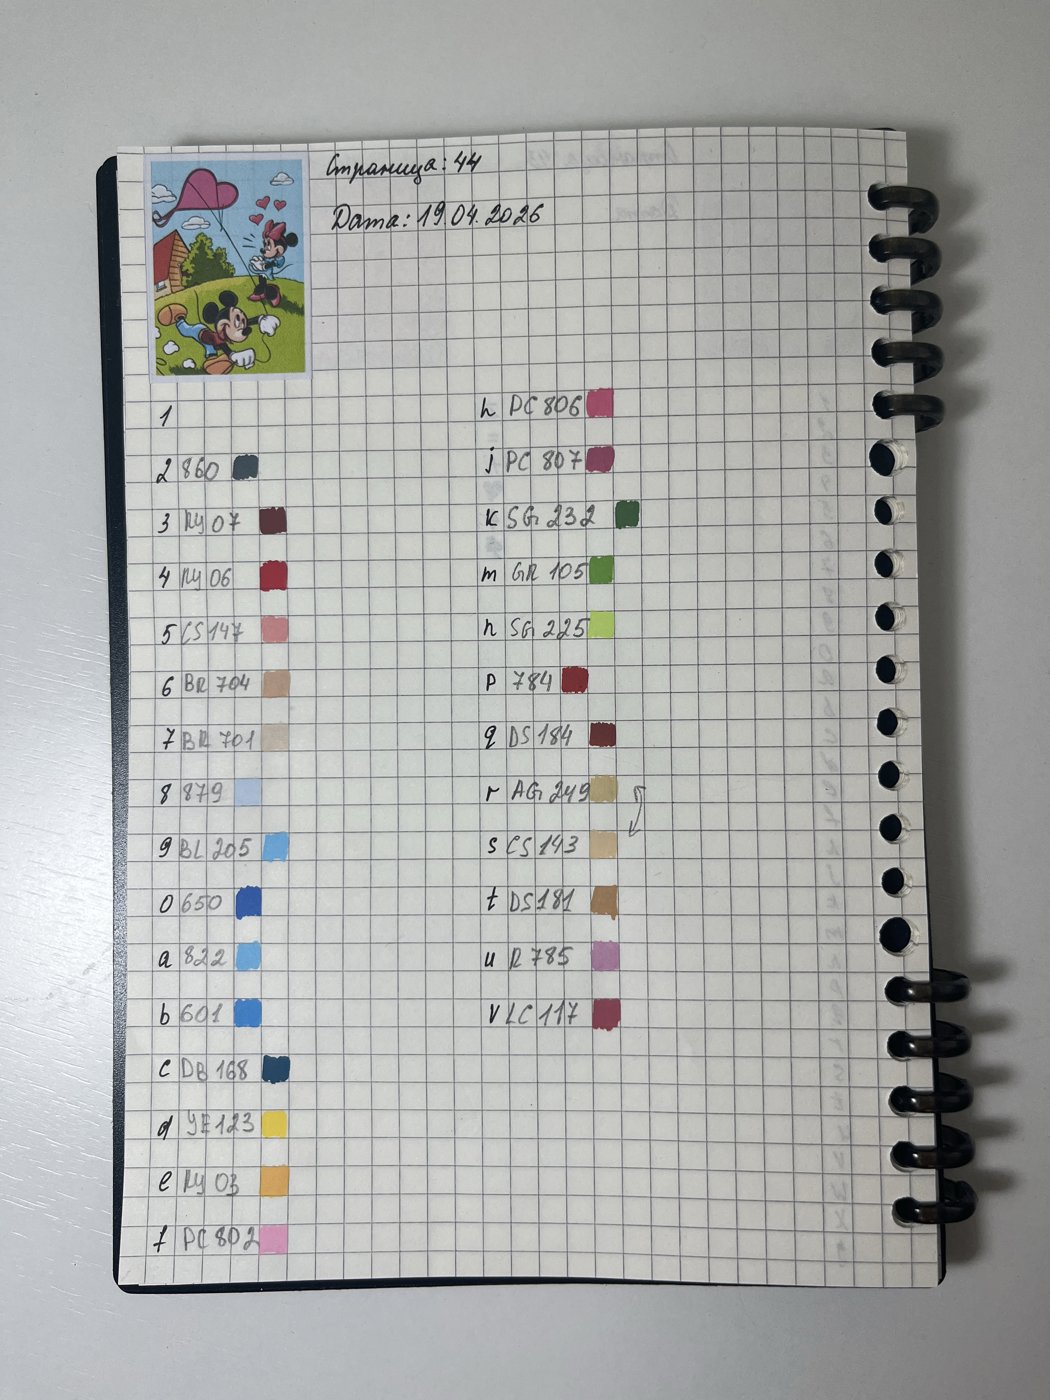 Страница: 44
Дата: 19.04.2026
1
2 860
3 RY 07
4 RY 06
5 CS 147
6 BR 704
7 BR 701
8 879
9 BL 205
0 650
a 822
b 601
c DB 168
d YE 123
e RY 03
f PC 802
h PC 806
j PC 807
k SG 232
m GR 105
n SG 225
p 784
q DS 184
r AG 249
s CS 143
t DS 181
u R 785
v LC 117